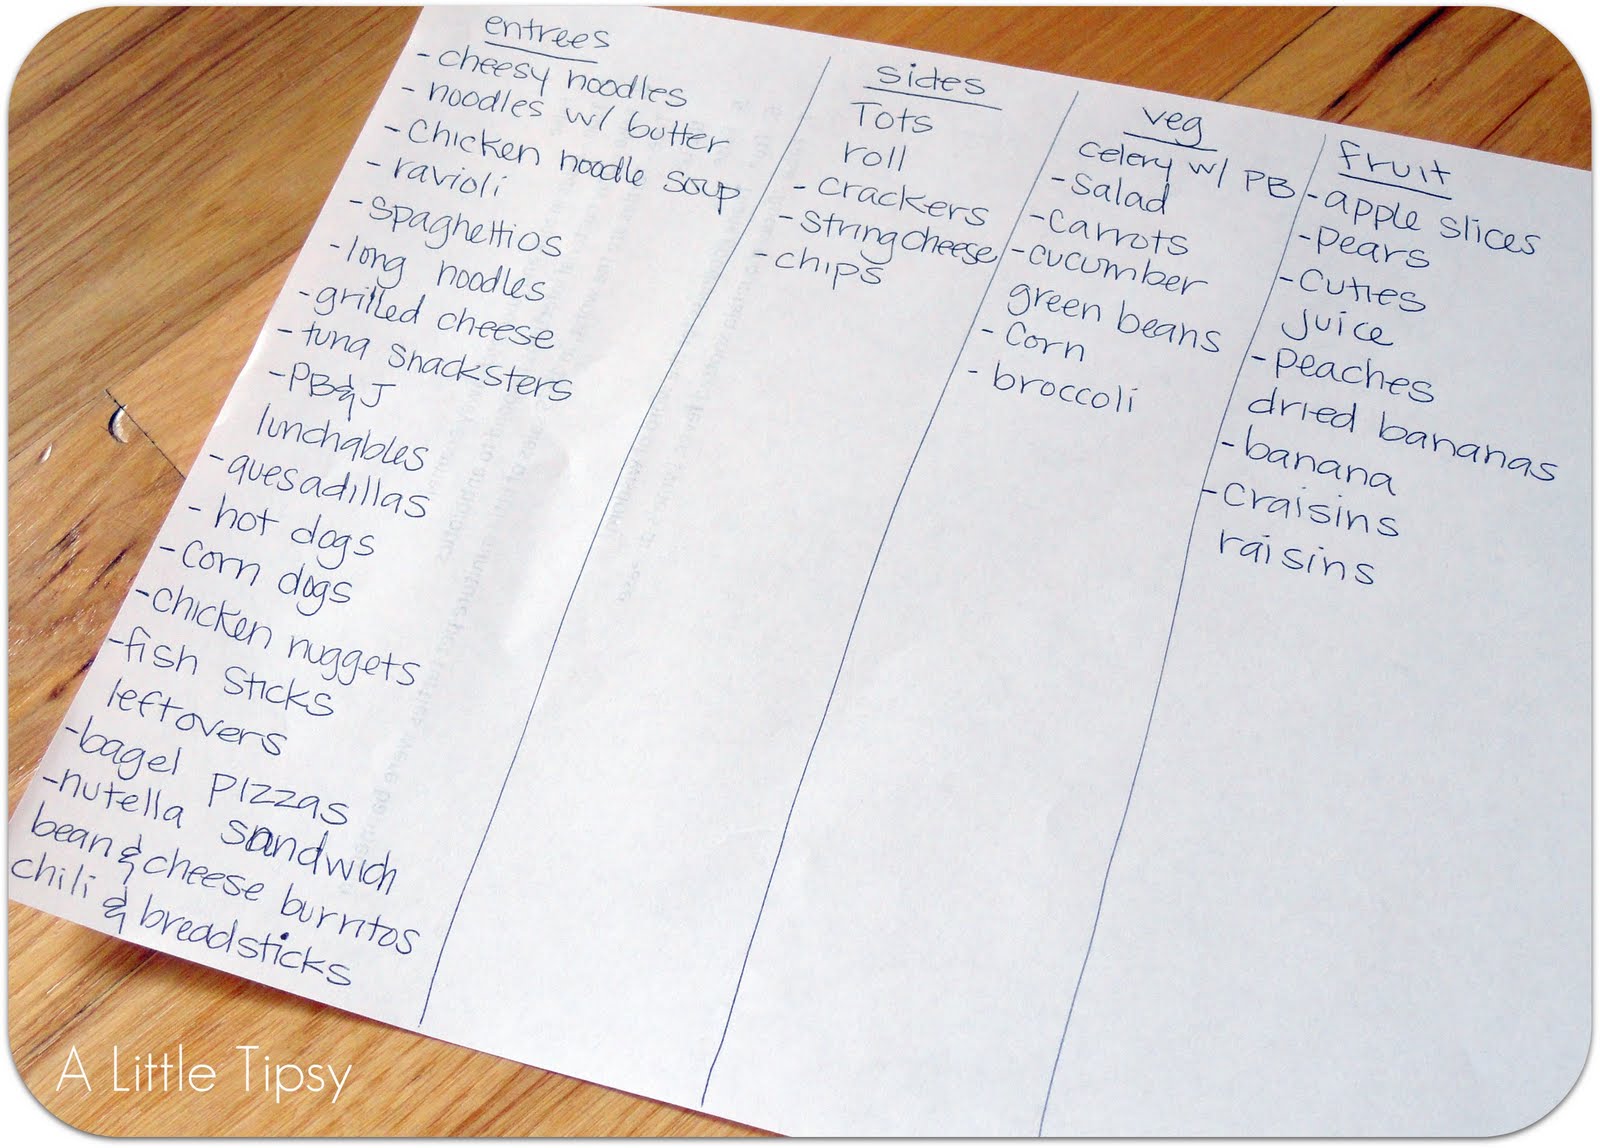 entrees
- cheesy noodles
- noodles w/ butter
- Chicken noodle soup
- ravioli
- spaghettios
- long noodles
- grilled cheese
- tuna snacksters
- PB&J
lunchables
- quesadillas
- hot dogs
- corn dogs
- chicken nuggets
- fish sticks
leftovers
- bagel pizzas
- nutella sandwich
bean & cheese burritos
chili & breadsticks
sides
Tots
roll
- crackers
- string cheese
- chips
veg
celery w/ PB
- salad
- carrots
- cucumber
green beans
- corn
- broccoli
fruit
- apple slices
- pears
- cuties
juice
- peaches
dried bananas
- banana
- craisins
raisins
A Little Tipsy